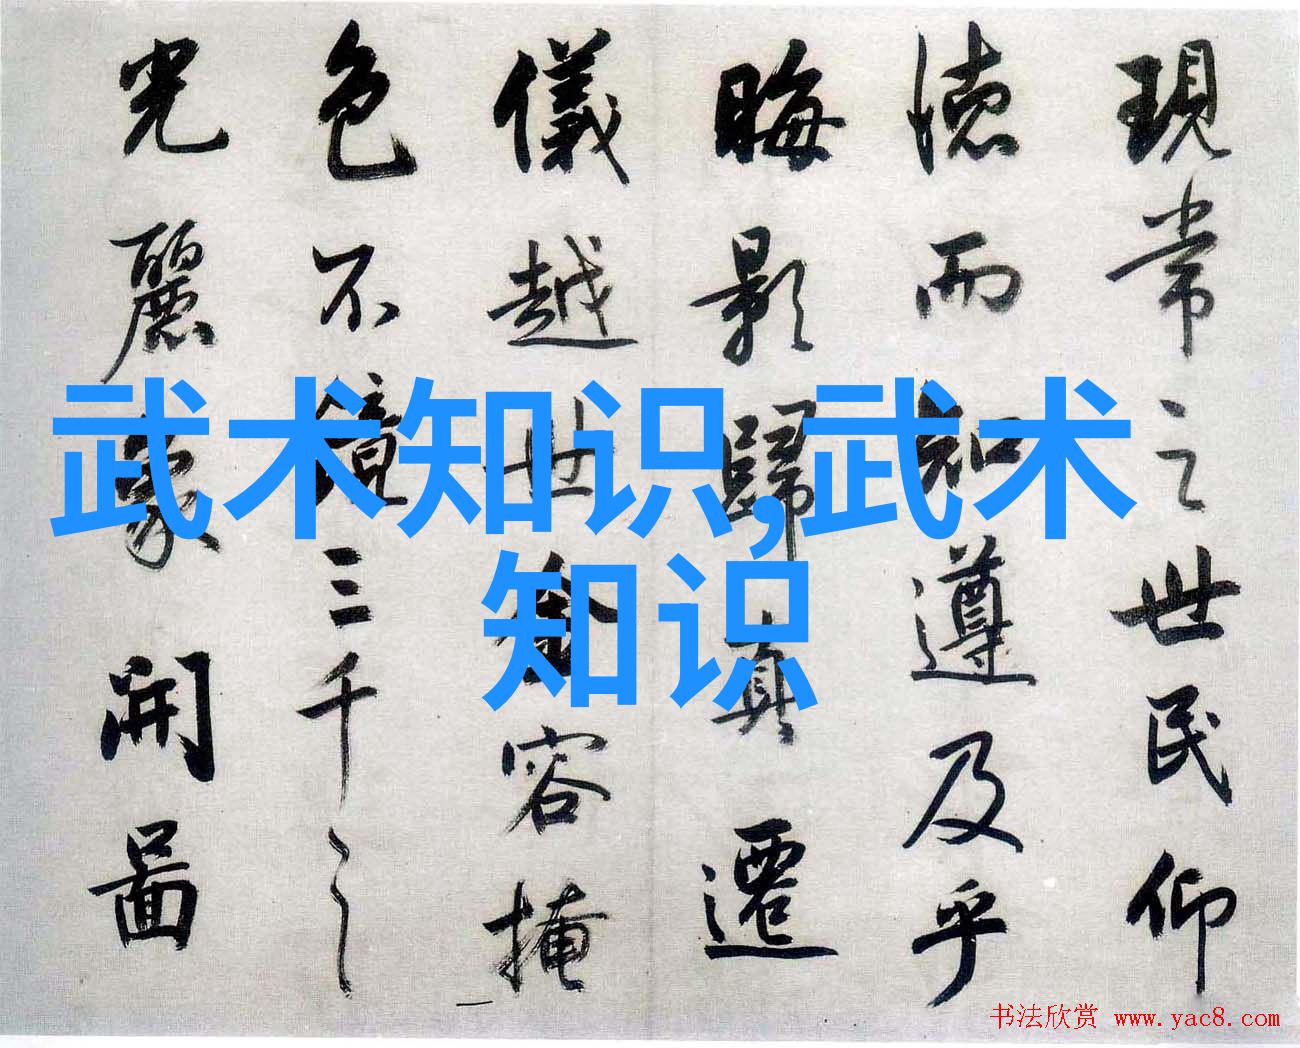 現常之世民仰
德而知遵及乎
晦影歸真遷
儀越世金容掩
色不鏡三千之
光麗象開圖
武术知识,武术
知识
书法欣赏 www.yac8.com